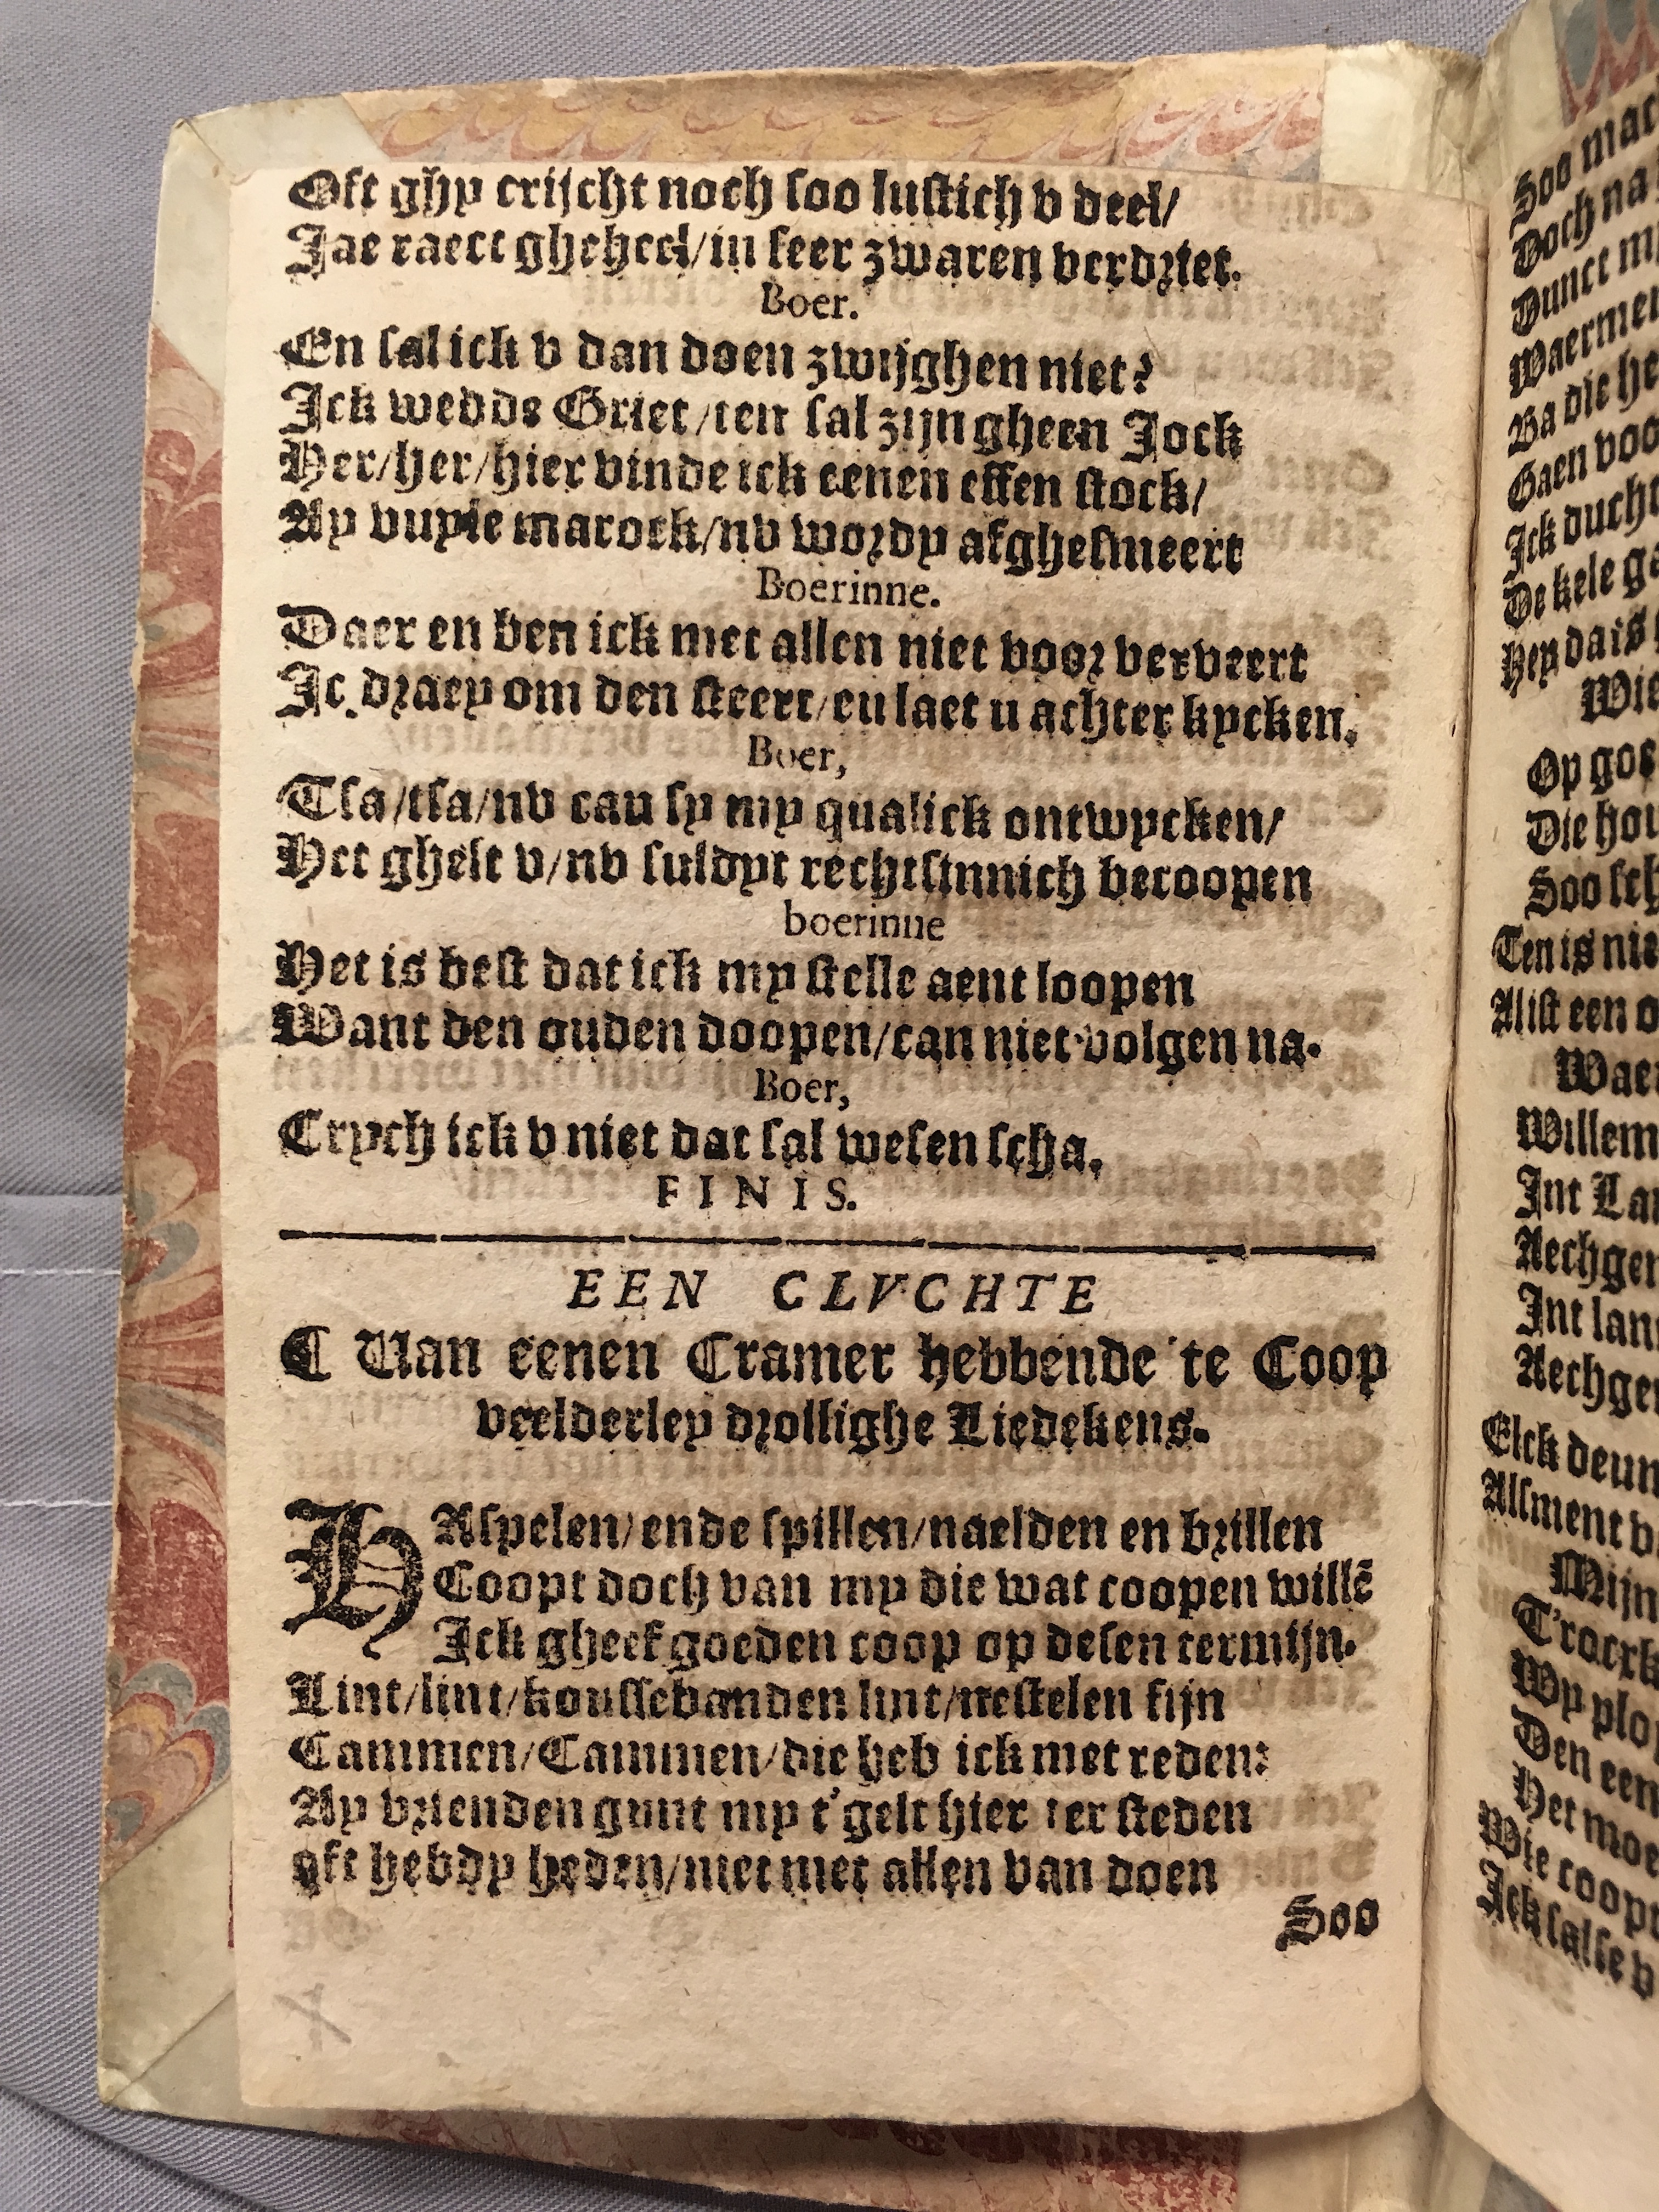 Oft ghy crijcht noch soo lustich v deel/
Jae raect gheheel/in seer zwaren verdriet.
Boer.
En sal ick v dan doen zwijghen niet?
Ick wedde Griet/ten sal zijn gheen Jock
Her/her/hier vinde ick eenen effen stock/
Ay vuyle marock/nv wordy afghesmeert
Boerinne.
Daer en ben ick met allen niet voor verveert
Ic draey om den steert/en laet u achter kycken.
Boer,
Tsa/tsa/nv can sy my qualick ontwycken/
Het ghelt v/nv suldyt rechtsinnich becoopen
boerinne
Het is best dat ick my stelle aent loopen
Want den ouden doopen/can niet volgen na.
Boer,
Crych ick v niet dat sal wesen scha.
FINIS.
EEN CLVCHTE
Van eenen Cramer hebbende te Coop
veelderley drollighe Liedekens.
HAspelen/ende spillen/naelden en brillen
Coopt doch van my die wat coopen willē
Ick gheef goeden coop op desen termijn.
Lint/lint/koussebanden lint/nestelen fijn
Cammen/Cammen/die heb ick met reden:
Ay vrienden gunt my t'gelt hier ter steden
oft hebdy heden/niet met allen van doen
Soo
Soo
Doch na
Gaen
Ick
De kele
Hey da is
Op
Die
Ten is
Alist een
Willem
Int
Int
Elck
Alsment
Mijn
Wy
Den een
Het
Wie
Ick salse